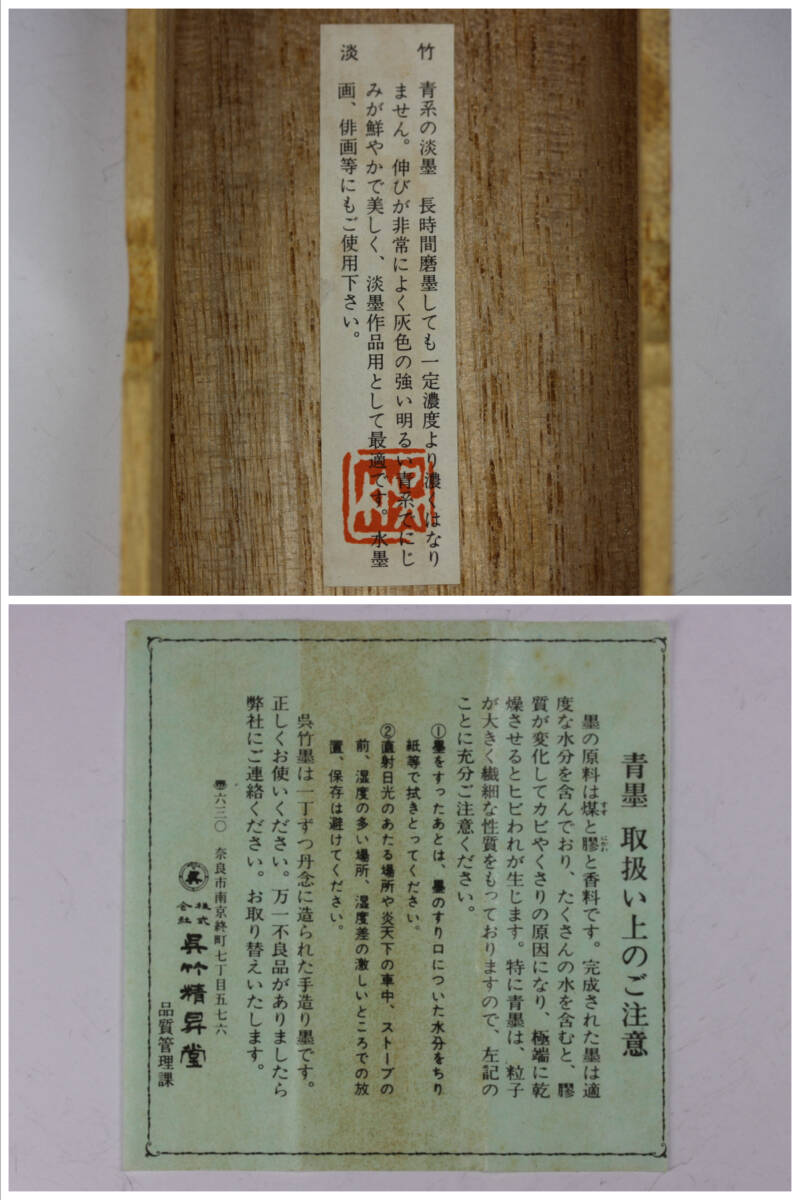 竹
淡
青系の淡墨 長時間磨墨しても一定濃度より濃くはなり
ません。伸びが非常によく灰色の強い明るい青系でにじ
みが鮮やかで美しく、淡墨作品用として最適です。水墨
画、俳画等にもご使用下さい。
青墨 取扱い上のご注意
墨の原料は煤と膠と香料です。完成された墨は適
すす
にかわ
度な水分を含んでおり、たくさんの水を含むと、膠
質が変化してカビやくさりの原因になり、極端に乾
燥させるとヒビわれが生じます。特に青墨は、粒子
が大きく繊細な性質をもっておりますので、左記の
ことに充分ご注意ください。
①墨をすったあとは、墨のすり口についた水分をちり
紙等で拭きとってください。
②直射日光のあたる場所や炎天下の車中、ストーブの
前、湿度の多い場所、温度差の激しいところでの放
置、保存は避けてください。
呉竹墨は一丁ずつ丹念に造られた手造り墨です。
正しくお使いください。万一不良品がありましたら
弊社にご連絡ください。お取り替えいたします。
六三〇 奈良市南京終町七丁目五七六
呉 株式会社 呉竹精昇堂
品質管理課